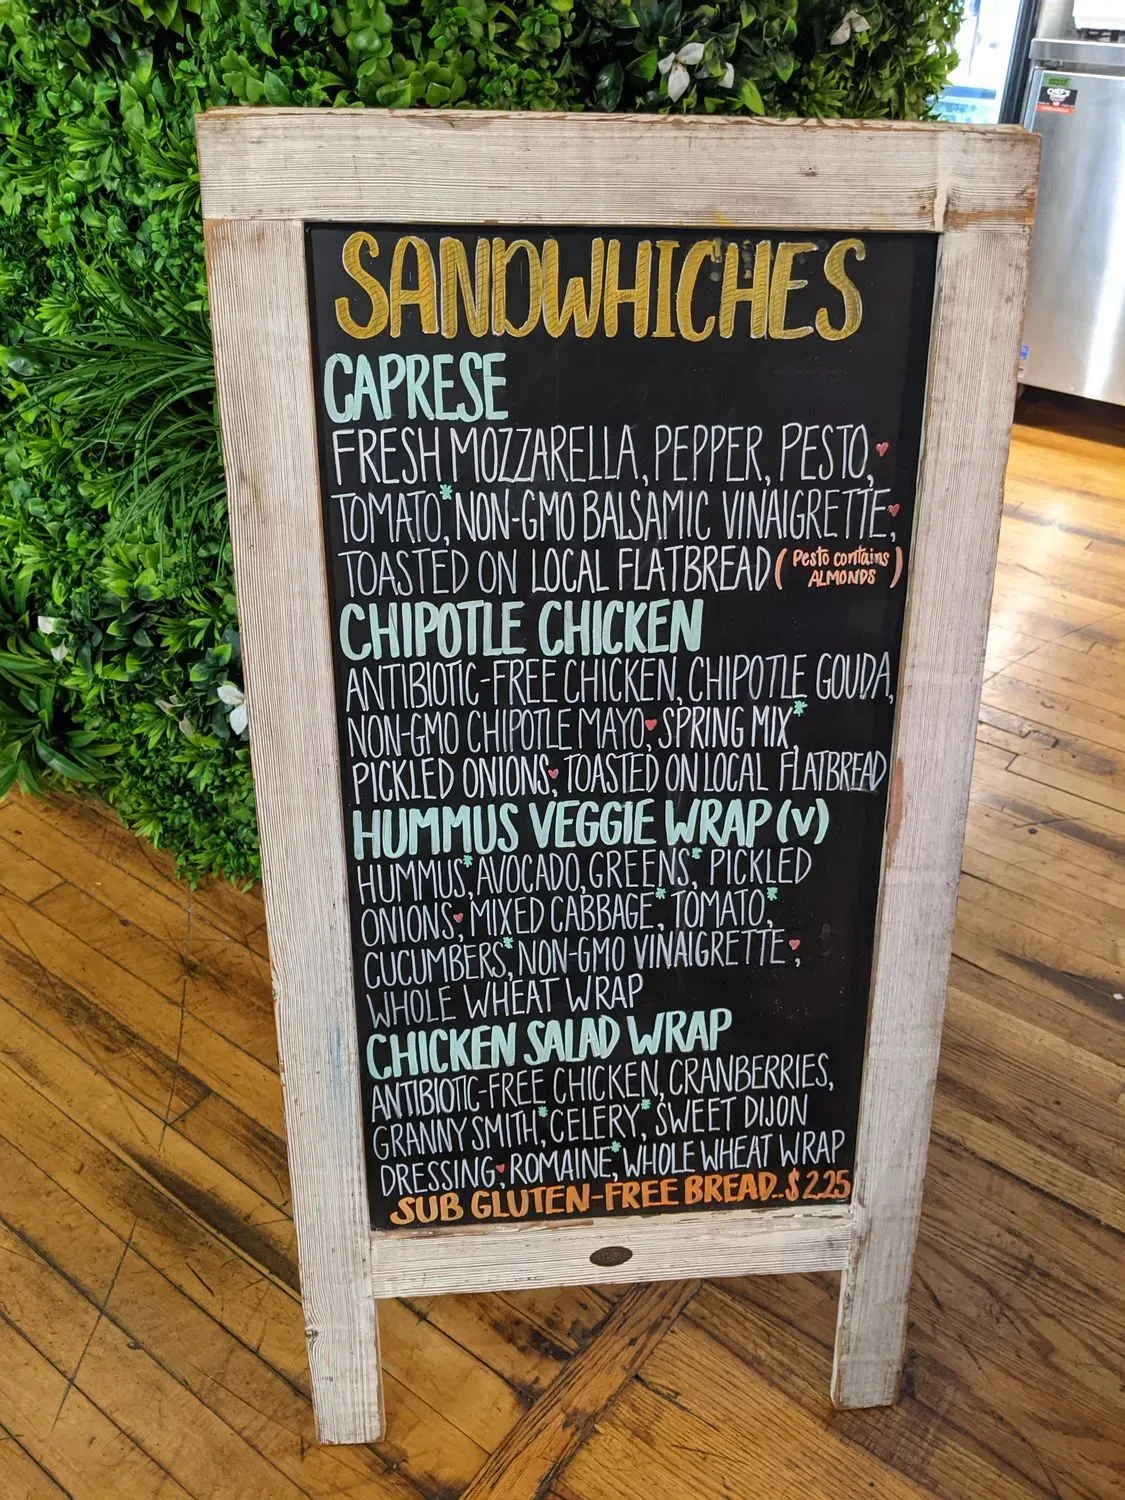 SANDWHICHES
CAPRESE
FRESH MOZZARELLA, PEPPER, PESTO,♥
TOMATO,* NON-GMO BALSAMIC VINAIGRETTE,♥
TOASTED ON LOCAL FLATBREAD (Pesto contains
ALMONDS)
CHIPOTLE CHICKEN
ANTIBIOTIC-FREE CHICKEN, CHIPOTLE GOUDA,
NON-GMO CHIPOTLE MAYO,♥ SPRING MIX,*
PICKLED ONIONS,♥ TOASTED ON LOCAL FLATBREAD
HUMMUS VEGGIE WRAP (V)
HUMMUS,* AVOCADO, GREENS,* PICKLED
ONIONS,♥ MIXED CABBAGE,* TOMATO,*
CUCUMBERS,* NON-GMO VINAIGRETTE♥,
WHOLE WHEAT WRAP
CHICKEN SALAD WRAP
ANTIBIOTIC-FREE CHICKEN, CRANBERRIES,
GRANNY SMITH,* CELERY,* SWEET DIJON
DRESSING,♥ ROMAINE,* WHOLE WHEAT WRAP
SUB GLUTEN-FREE BREAD...$2.25